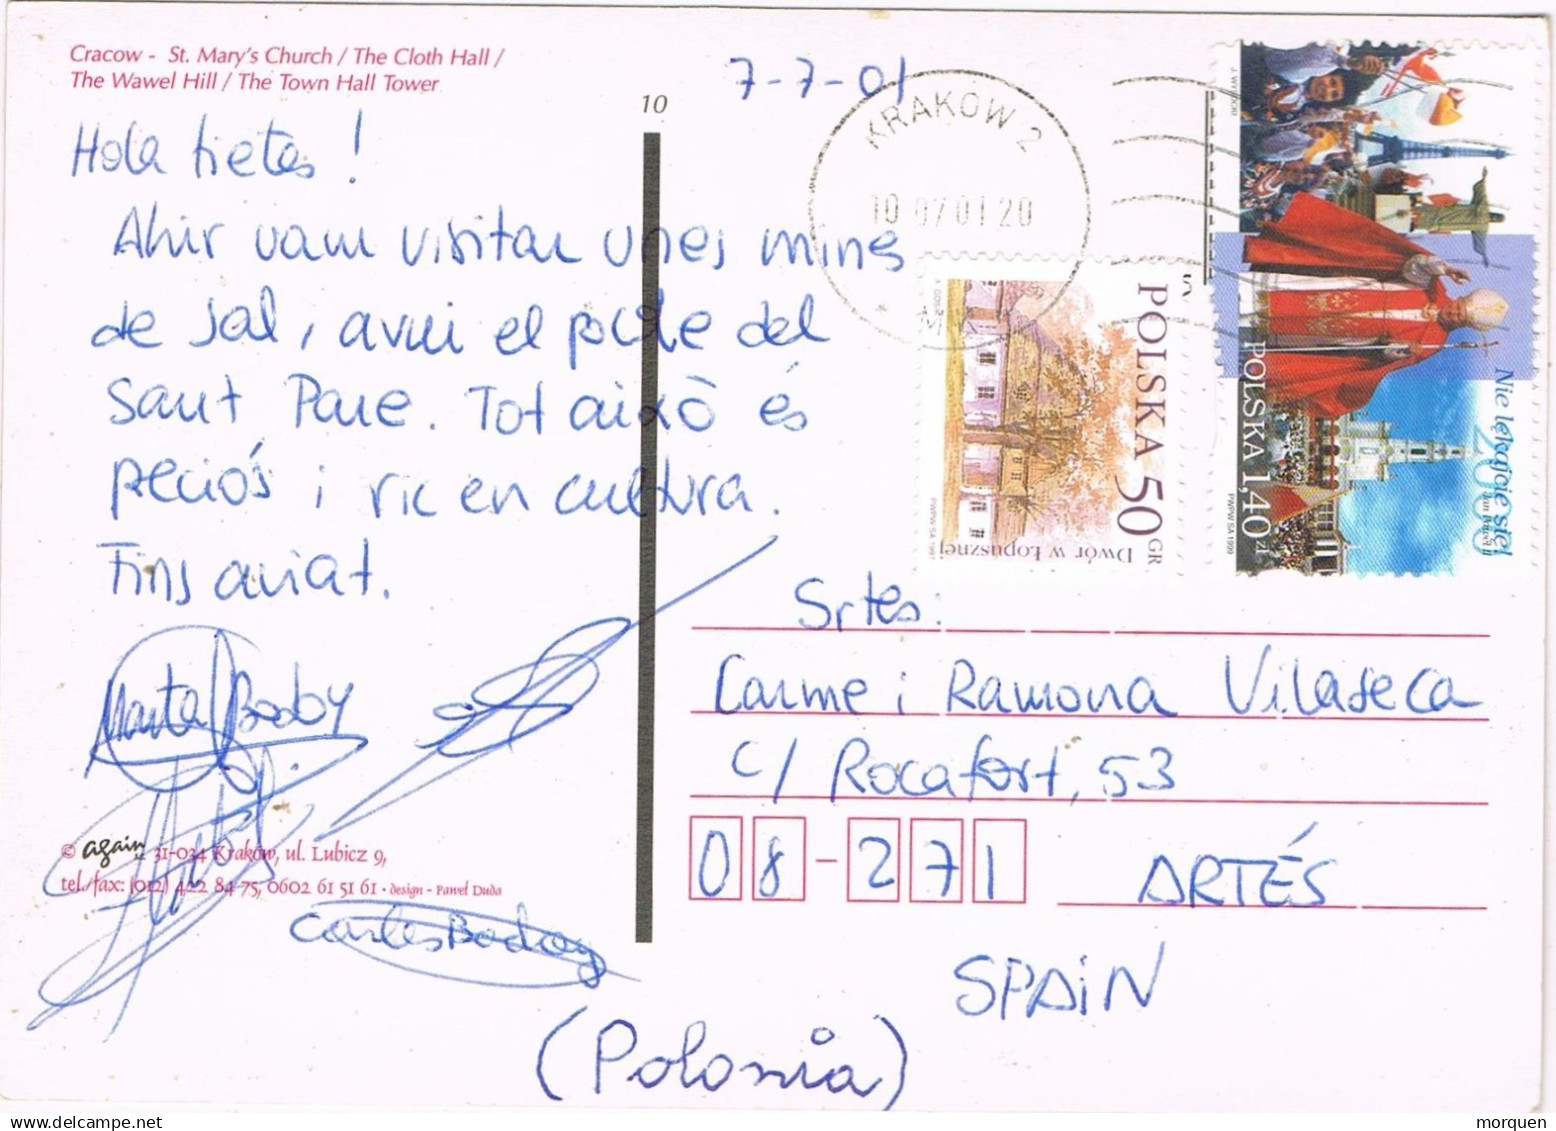 Cracow - St. Mary's Church / The Cloth Hall /
The Wawel Hill / The Town Hall Tower
10
7-7-01
Hola tietes!
Ahir vam visitar unes mines
de sal, avui el poble del
Sant Pare. Tot això és
peciós i ric en cultura.
Fins aviat.
Marta Badoy
Carles Badoy
© again 31-034 Kraków, ul. Lubicz 9,
tel./fax: (012) 422 84 75, 0602 61 51 61 · design - Paweł Duda
KRAKÓW 2
10 07 01 20
POLSKA 50 GR
Dwór w Łopusznej
PWPW SA 1997
J. WYSOCKI
POLSKA 1,40 zł
Nie lękajcie się!
Jan Paweł II
PWPW SA 1999
Srtes.
Carme i Ramona Vilaseca
C/ Rocafort, 53
08-271 ARTÉS
SPAIN
(Polonia)
morquen